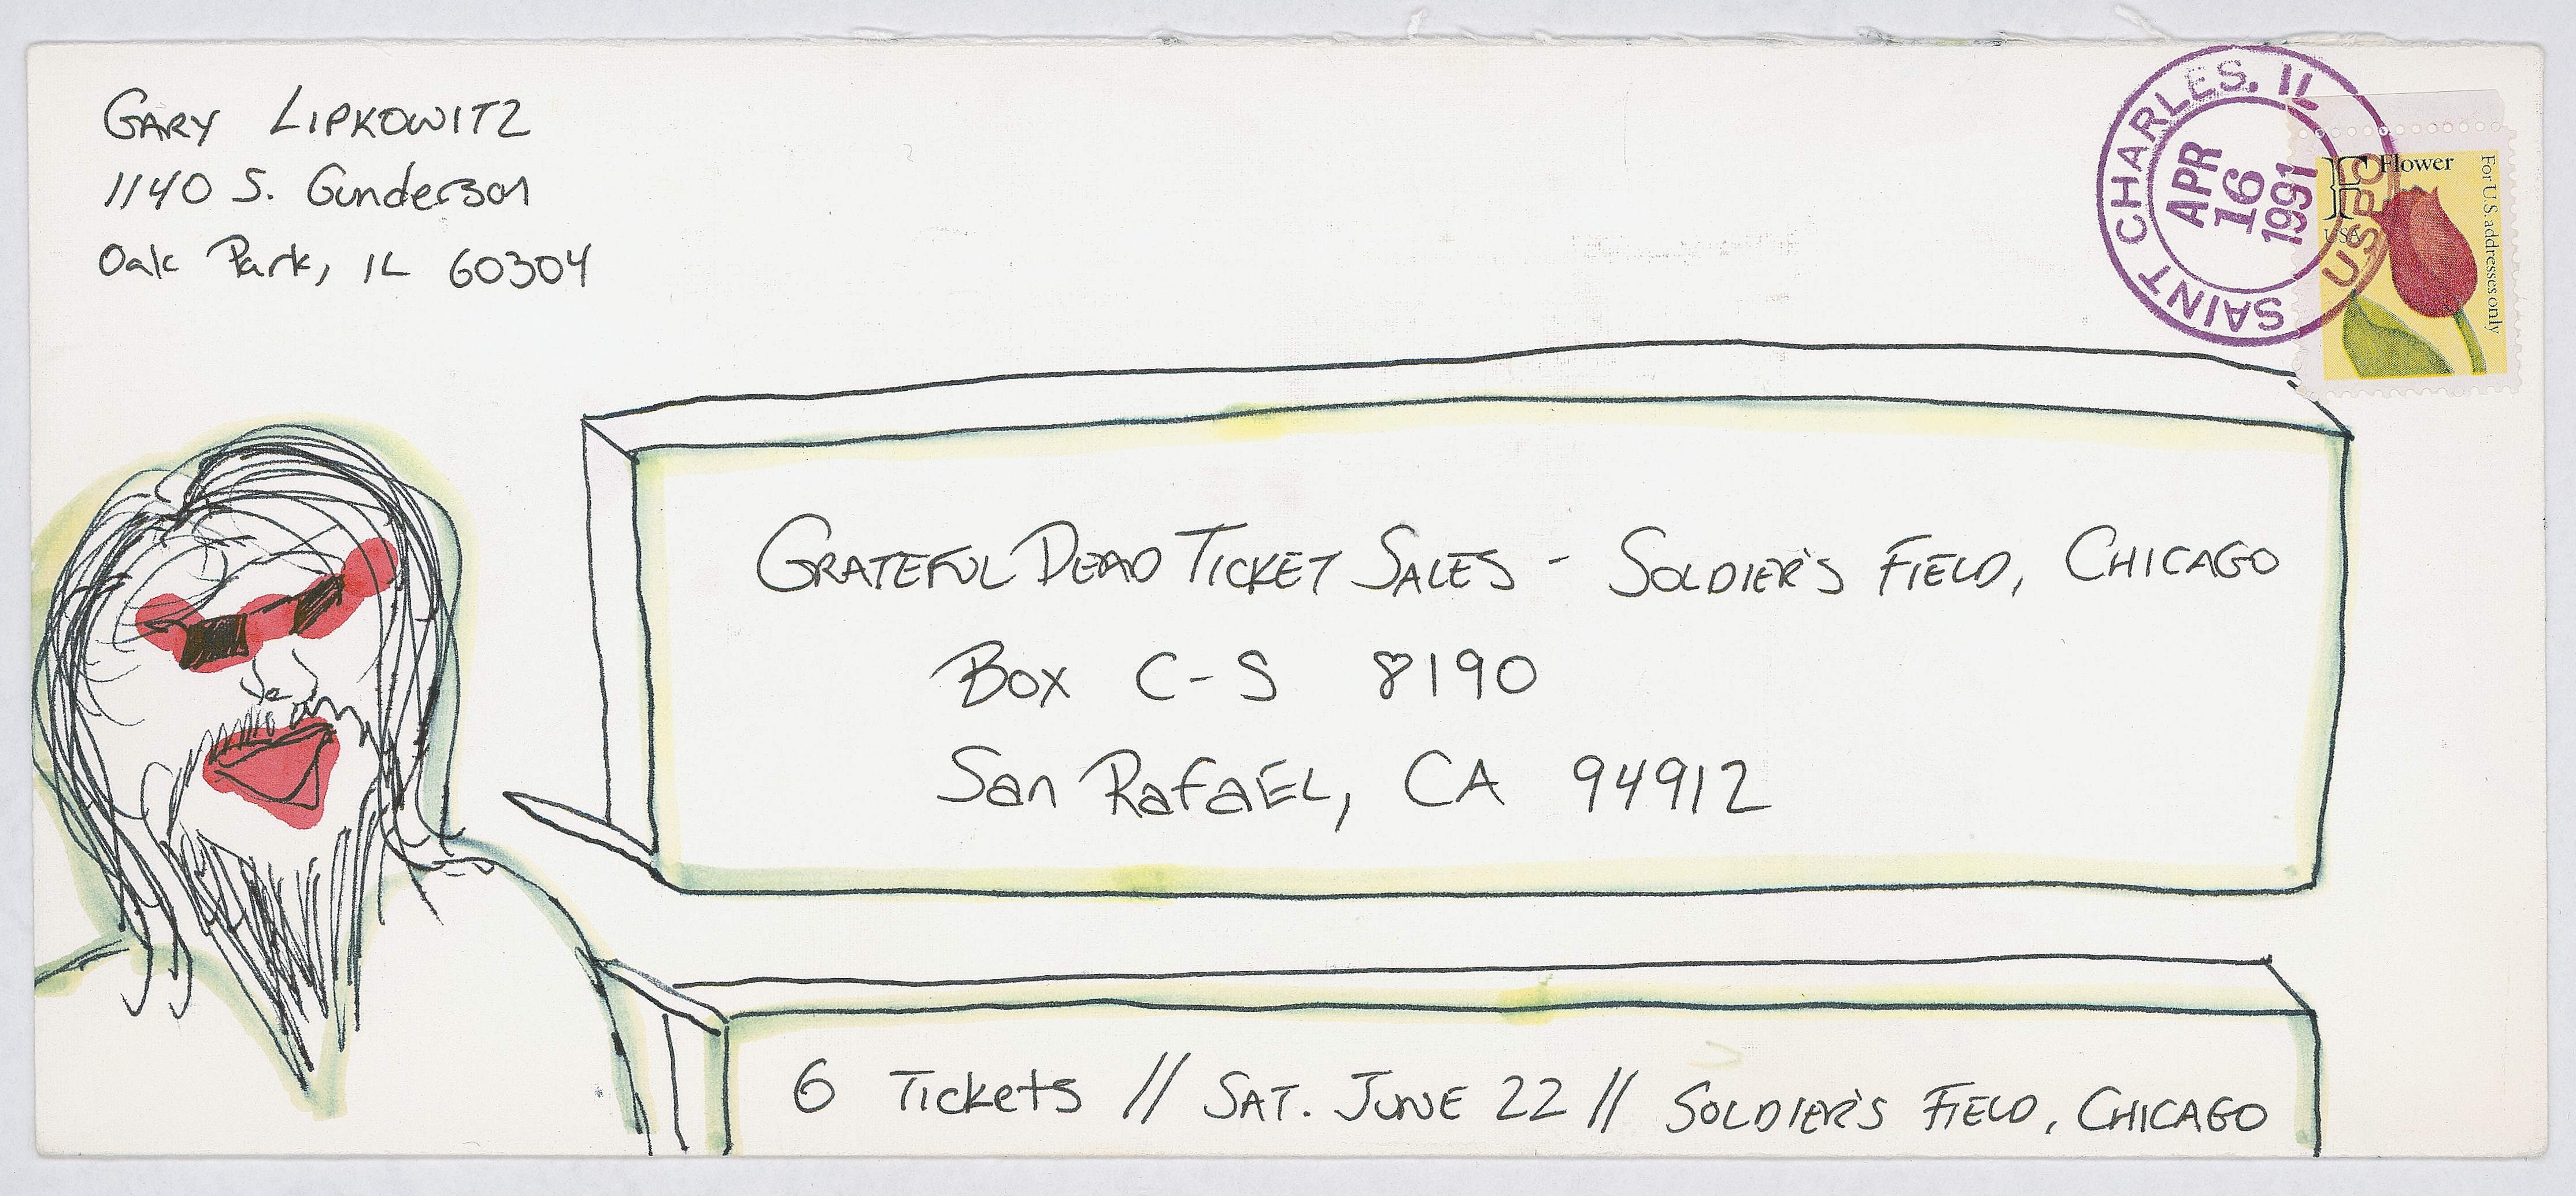 GARY LIPKOWITZ
1140 S. Gunderson
Oak Park, IL 60304
SAINT CHARLES, IL
APR
16
1991
USPO
F Flower
USA
For U.S. addresses only
GRATEFUL DEAD TICKET SALES - SOLDIER'S FIELD, CHICAGO
Box C-S 8190
San RafaEL, CA 94912
6 Tickets // SAT. JUNE 22 // SOLDIER'S FIELD, CHICAGO